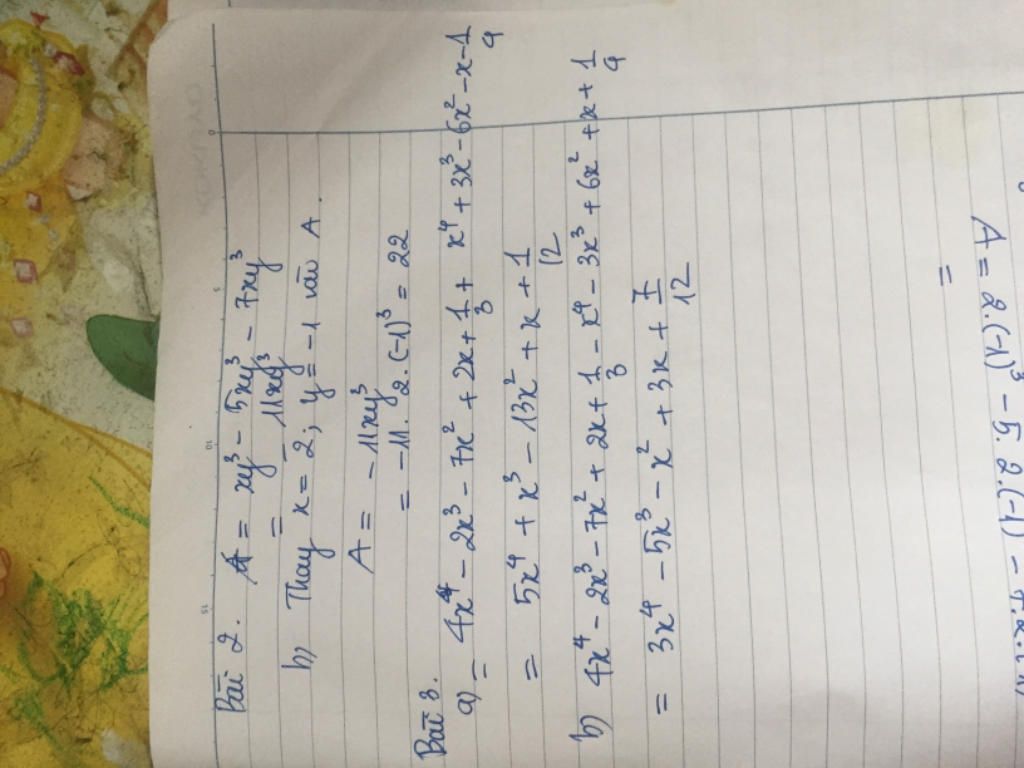 Bài 2. A = xy³ - 5xy³ - 7xy³
= - 11xy³
b) Thay x = 2; y = -1 vào A.
A = - 11xy³
= -11. 2. (-1)³ = 22
Bài 3.
a) = 4x⁴ - 2x³ - 7x² + 2x + 1/3 + x⁴ + 3x³ - 6x² - x - 1/4
= 5x⁴ + x³ - 13x² + x + 1/12
b) 4x⁴ - 2x³ - 7x² + 2x + 1/3 - x⁴ - 3x³ + 6x² + x + 1/4
= 3x⁴ - 5x³ - x² + 3x + 7/12
A = 2.(-1)³ - 5. 2.(-1) -
=